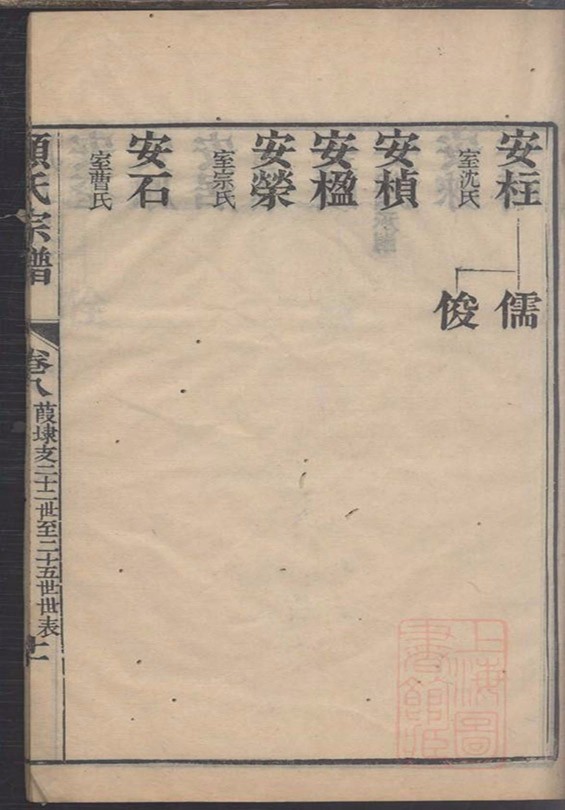 安柱
室沈氏
儒
俊
安楨
安楹
安榮
室宗氏
安石
室曹氏
氏宗譜
卷八
葭埭支二十一世至二十五世世表
上海圖書館